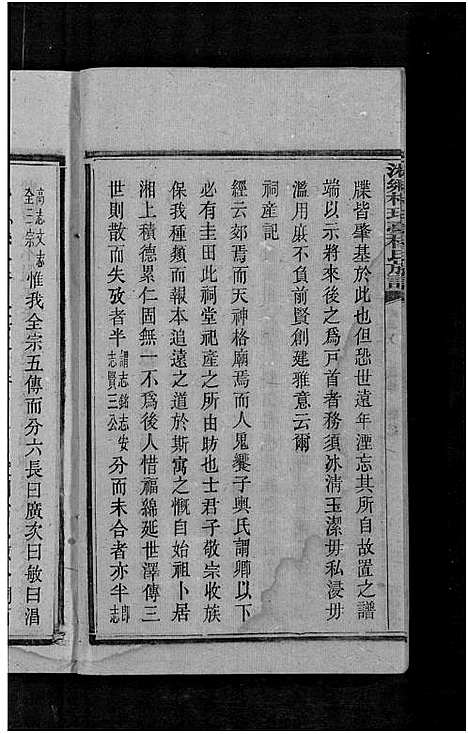 牒皆肇基於此也但恐世遠年湮忘其所自故置之譜
端以示將來後之爲戸首者務須冰清玉潔毋私浸毋
濫用庶不負前賢創建雅意云爾
祠產記
經云郊焉而天神格廟焉而人鬼饗子輿氏謂卿以下
必有圭田此祠堂祀產之所由昉也士君子敬宗收族
保我種類而報本追遠之道於斯寓之慨自始祖卜居
湘上積德累仁固無一不爲後人惜福綿延世澤傳三
世則散而失攷者半謂志銘志安志賢三公分而未合者亦半卽志
高志文志全三宗惟我全宗五傳而分六長曰廣次曰敏曰渭